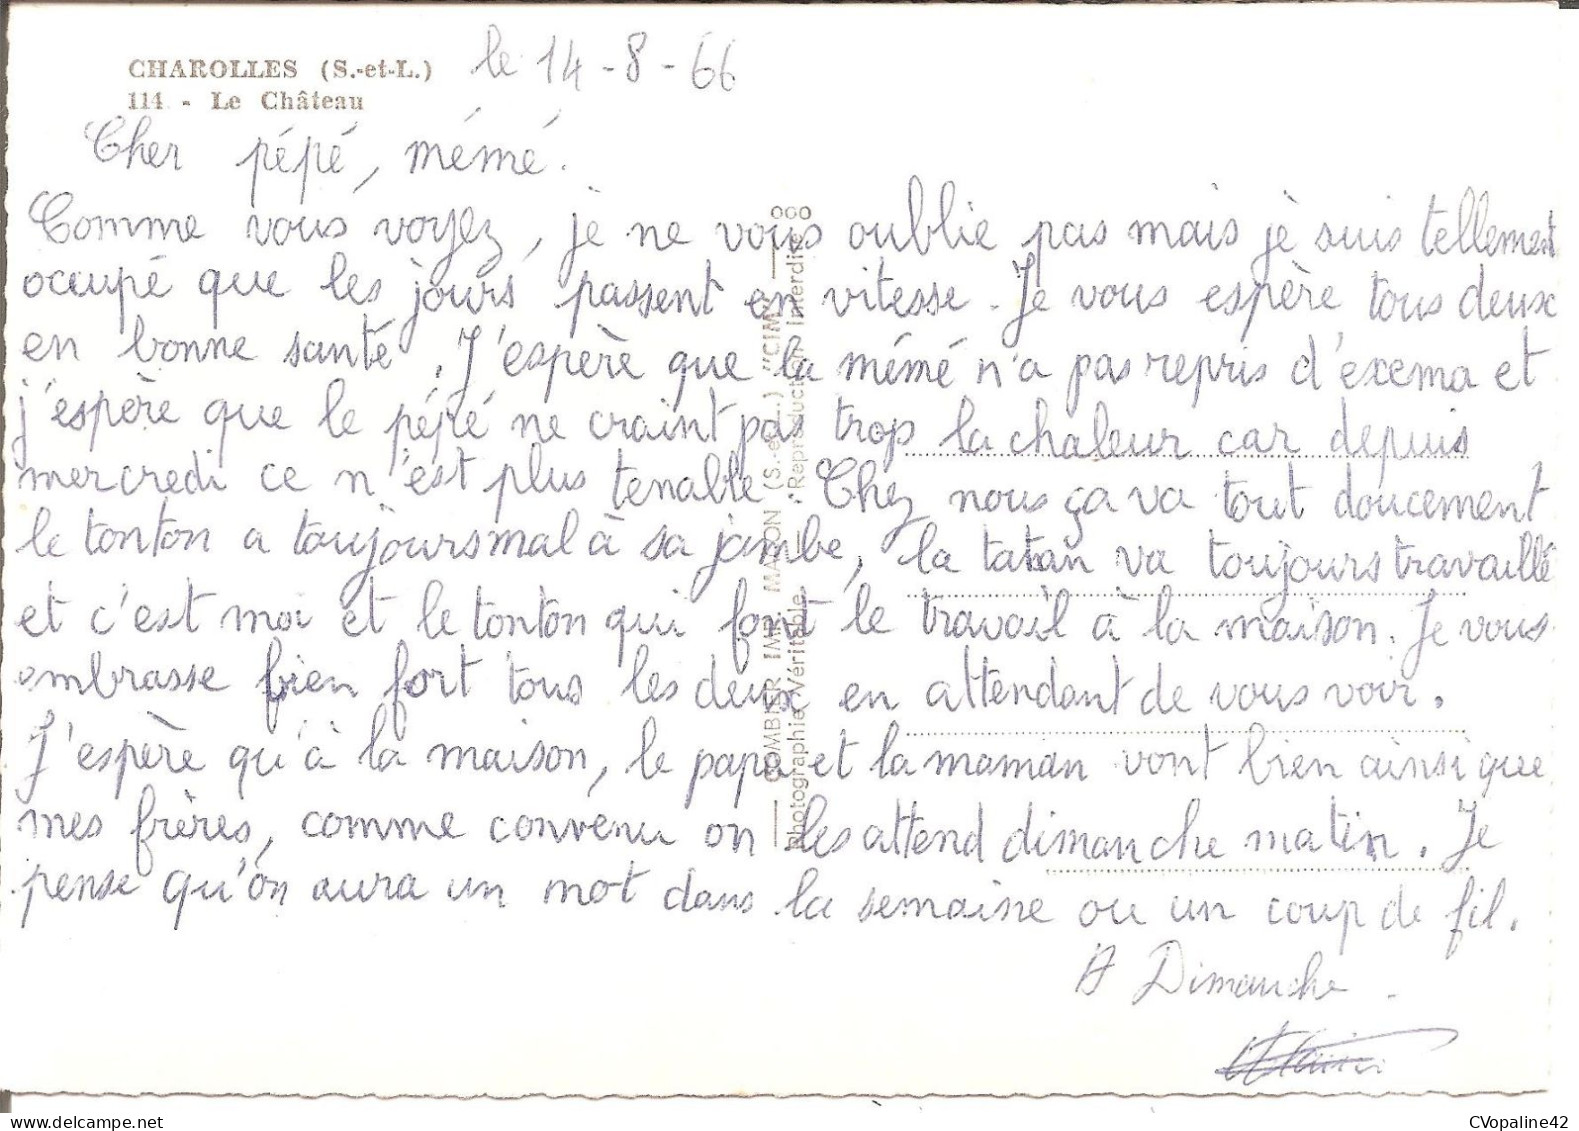 CHAROLLES (S.-et-L.)
114 - Le Château
le 14-8-66
Cher pépé, mémé.
Comme vous voyez, je ne vous oublie pas mais je suis tellement
occupé que les jours passent en vitesse. Je vous espère tous deux
en bonne santé. J'espère que la mémé n'a pas repris d'exema et
j'espère que le pépé ne craint pas trop la chaleur car depuis
mercredi ce n'est plus tenable. Chez nous ça va tout doucement
le tonton a toujours mal à sa jambe, la tatan va toujours travaillé
et c'est moi et le tonton qui font le travail à la maison. Je vous
embrasse bien fort tous les deux en attendant de vous voir.
J'espère qu'à la maison, le papa et la maman vont bien ainsi que
mes frères, comme convenu on les attend dimanche matin. Je
pense qu'on aura un mot dans la semaine ou un coup de fil.
A Dimanche.
COMBIER IMP. MACON (S.-et-L.) "CIM"
Photographie Véritable - Reproduction Interdite
CVopaline42